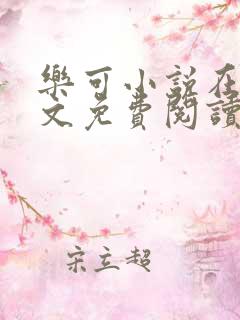 樂可小說在
文免費閱讀
宋立超